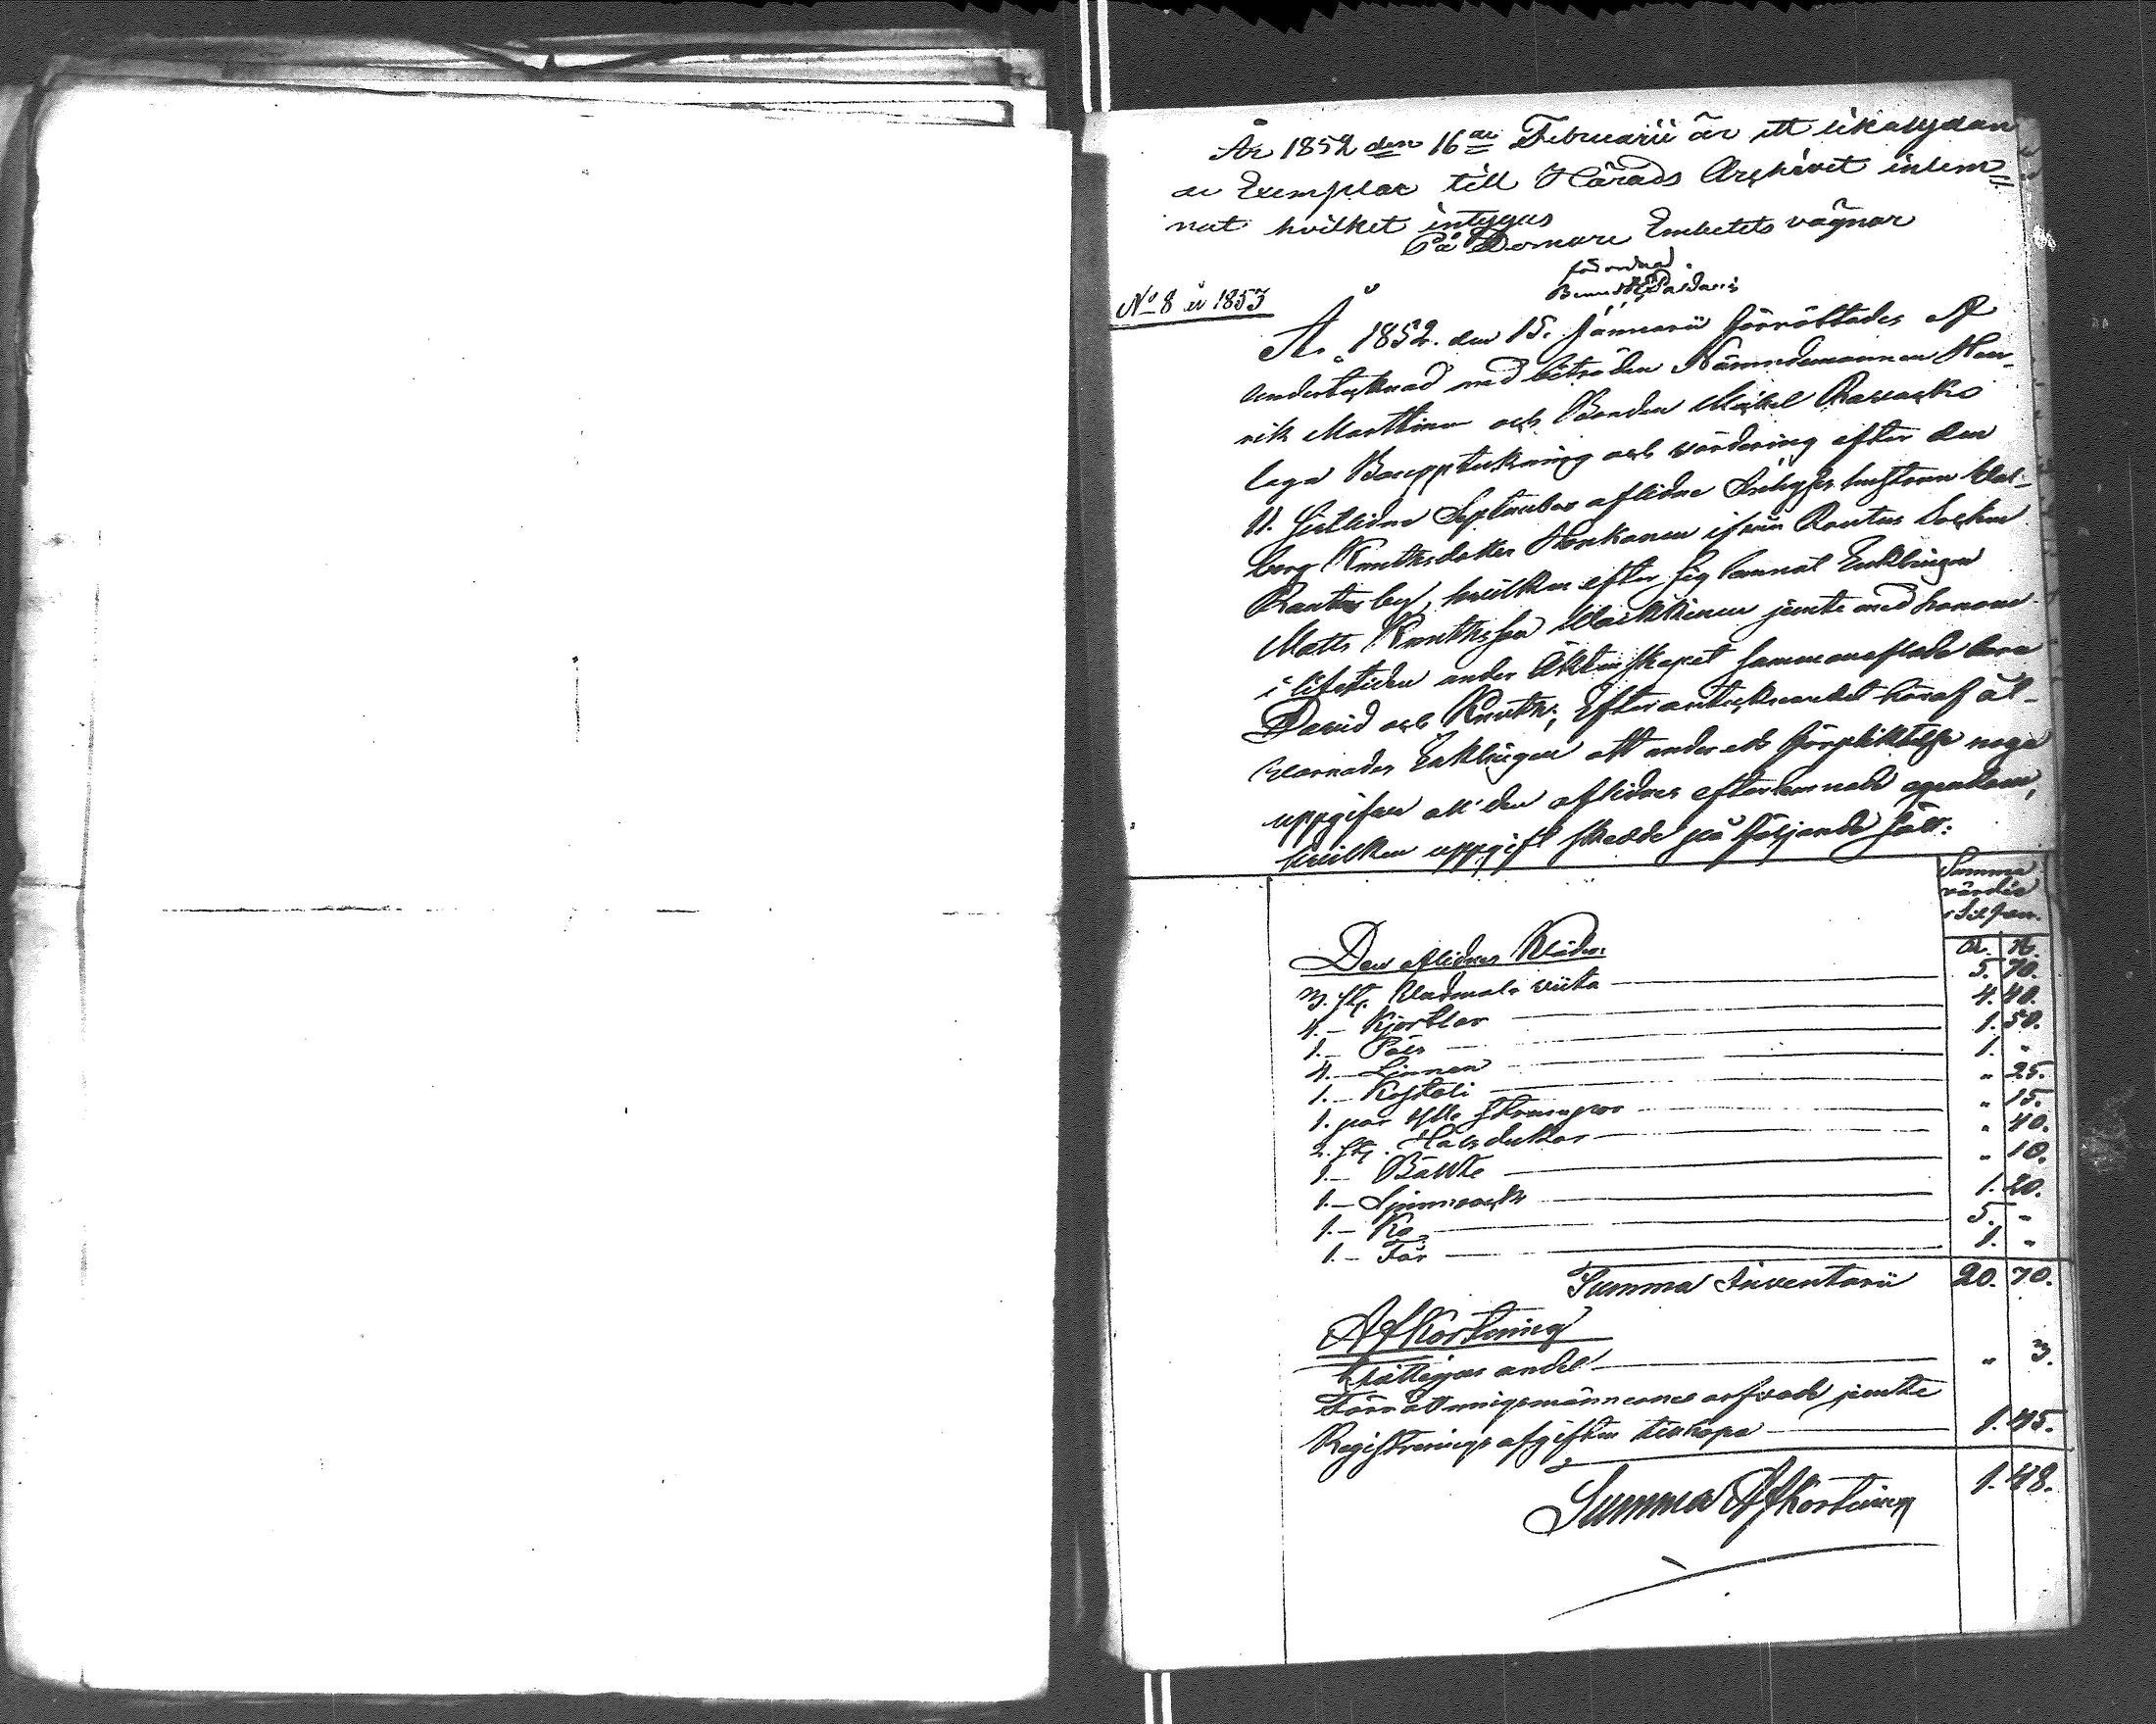 År 1852 den 16de Februarii är ett likalydan
de Exemplar till Härads Archivet inlem=
nat hvilket intygas
På Domare Embetets vägnar
förordnad
No 8 år 1853
År 1852. den 15. Januarii förrättades af
undertecknad med biträden Nämndemannen Hen-
rik Marttinen och Bonden Mickel
laga Bouppteckning och värdering efter den
11. sistlidne September aflidne hustrun Wal-
borg Knuthsdotter Honkanen ifrån Rautus Sockn
Rautus by, hvilken efter sig lemnat Enklingen
Matts Knuthsson jemte med honom
i lifstiden under Äktenskapet sammanaflade barn
David och Knuth; Efter antecknandet häraf åt-
varnades Enklingen att under eds förpliktelse noga
uppgifva all den aflidnes efterlemnade egendom,
hvilken uppgift skedde på följande sätt:
Summa
värdie
i Silfver.
R. K.
Den aflidnes Kläder:
3. st. Vadmals viita 5. 70.
4. — Kjortlar 4. 40.
1. — Päls 1. 50.
4. — Linnen 1. "
1. — Kostoli " 25.
1. par Ylle strumpor " 15.
2. st. Halsdukar " 40.
1. — Bälte " 10.
1. — Spinnrock 1. 20.
1. — Ko 5. "
1. — Får 1. "
Summa Inventarii 20. 70.
Afkortning
Fattigas andel " 3.
Förrättningsmännernes arfvode jemte
Registrerings afgiften tillhopa 1. 45.
Summa Afkortning 1. 48.